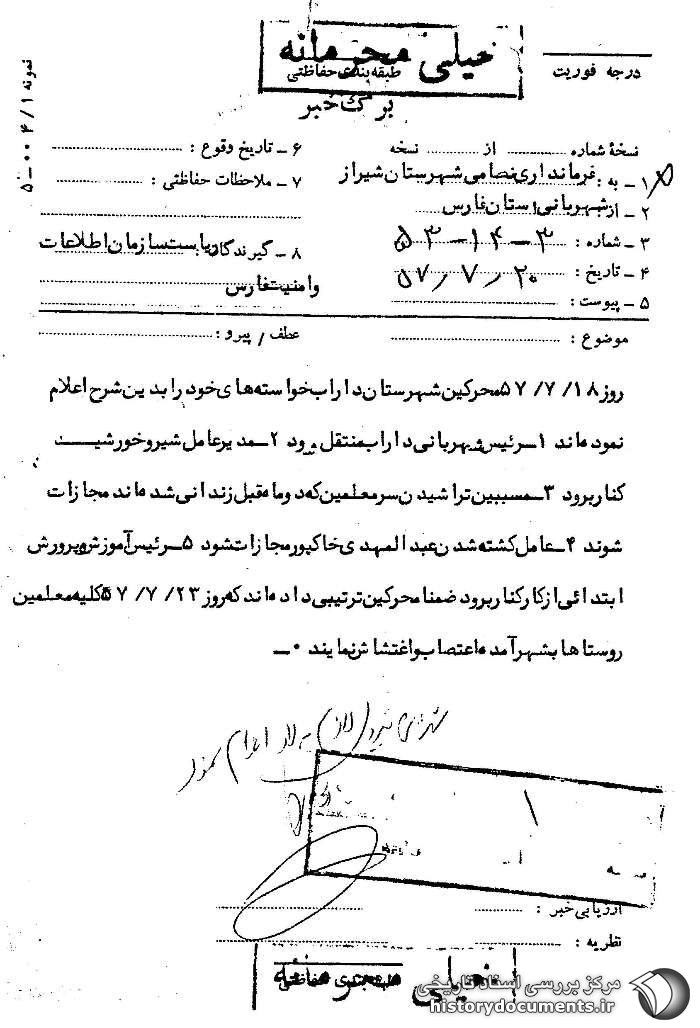 خیلی محرمانه
طبقه‌بندی حفاظتی
برگ خبر
درجه فوریت
نمونه ۱ / ۴ ۰۰ ـ ۵
نسخهٔ شماره ........ از ........ نسخه
۱ ـ به : فرمانداری نظامی شهرستان شیراز
۲ ـ از شهربانی استان فارس
۳ ـ شماره : ۳ – ۱۴ – ۵۳
۴ ـ تاریخ : ۲۰ / ۷ / ۵۷
۵ ـ پیوست :
۶ ـ تاریخ وقوع :
۷ ـ ملاحظات حفاظتی :
۸ ـ گیرندگان : ریاست سازمان اطلاعات
وامنیت فارس
موضوع :
عطف / پیرو :
روز ۱۸ / ۷ / ۵۷ محرکین شهرستان داراب خواسته‌های خود را بدین شرح اعلام
نموده‌اند ۱ ـ رئیس شهربانی داراب منتقل رود ۲ ـ مدیر عامل شیر و خورشید
کنار برود ۳ ـ مسببین تراشیدن سر معلمین که دو ماه قبل زندانی شده‌اند مجازات
شوند ۴ ـ عامل کشته شدن عبدالمهدی خاکپور مجازات شود ۵ ـ رئیس آموزش و پرورش
ابتدائی از کار کنار برود ضمنا محرکین ترتیبی داده‌اند که روز ۲۳ / ۷ / ۵۷ کلیه معلمین
روستاها بشهر آمده اعتصاب و اغتشاش نمایند ۰ ـ
۱
ارزیابی خبر :
نظریه :
طبقه‌بندی حفاظتی
خیلی محرمانه
مرکز بررسی اسناد تاریخی
historydocuments.ir